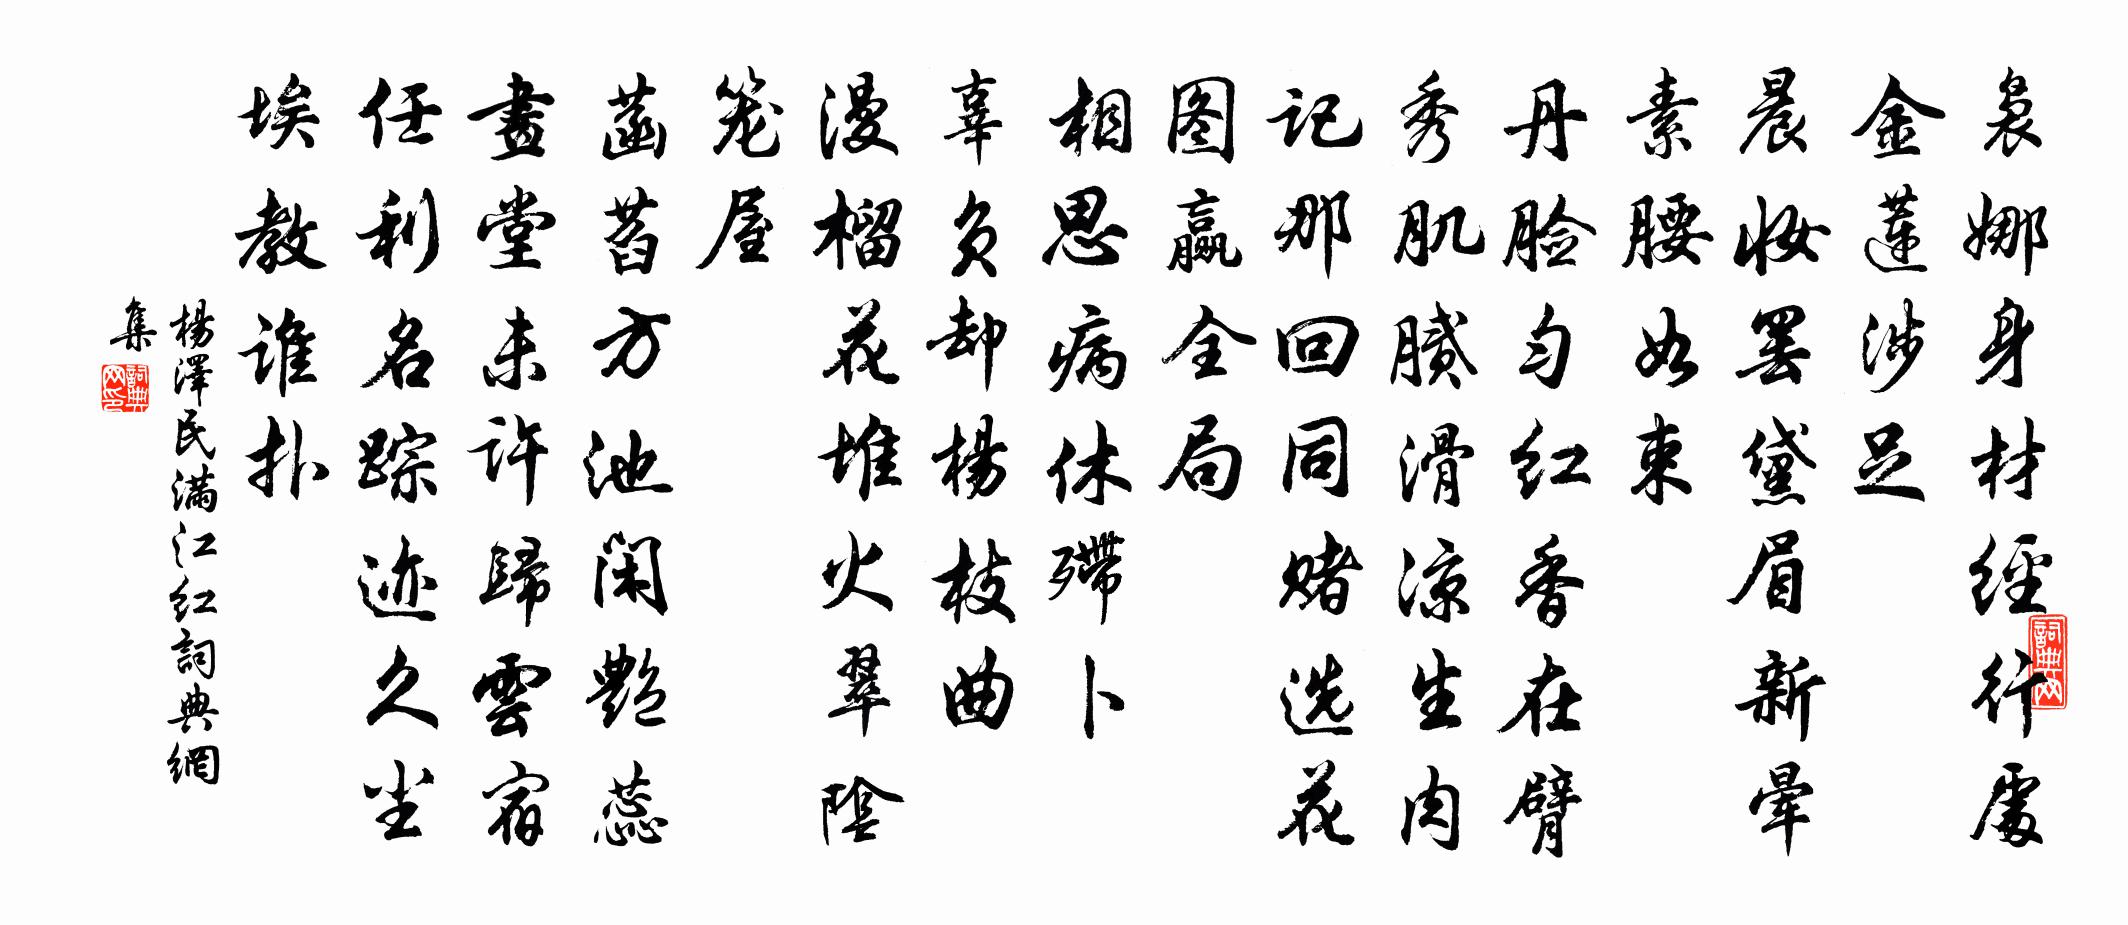 袅娜身材经行處
金莲涉足
晨妆罢黛眉新晕
素腰如束
丹脸匀红香在臂
秀肌腻滑凉生肉
记那回同赌选花
图赢全局
相思病休殢卜
辜负却楊枝曲
漫榴花堆火翠陰
笼屋
菡萏方池闲艷蕊
畫堂未许歸雲宿
任利名踪迹久尘
埃教谁扑
楊澤民满江红詞典網
集
詞典网